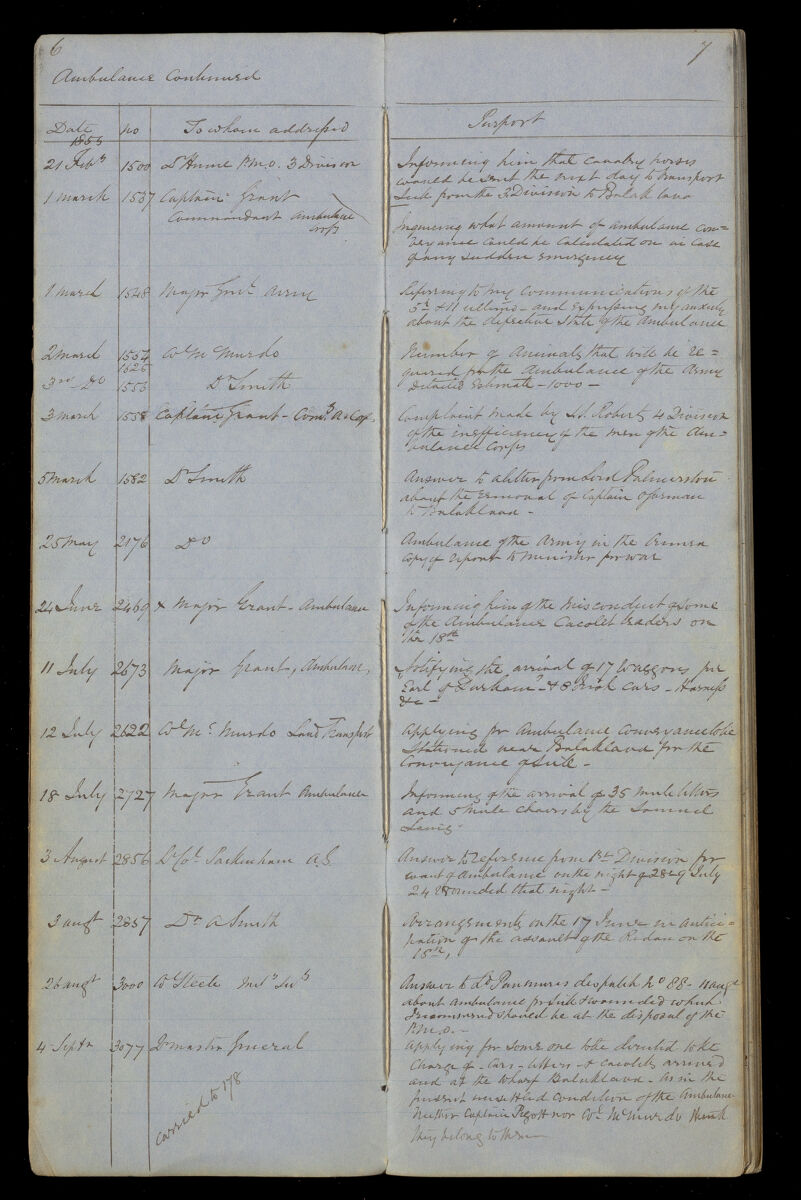 6
Ambulance Continued
Date no To whom addressed
1855
21 Feby 1500 Dr Hume P.M.O. 3 Division
1 march 1537 Captain Grant
Commandant Ambulance
Corps
1 march 1548 Major Genl. Airey
2 march 1554 Col McMurdo
1526
3rd Do 1553 Dr Smith
3 march 1558 Captain Grant - Comdg A. Cops
5 march 1582 Dr Smith
25 may 2176 Do
24 June 2469 x Major Grant - Ambulance
11 July 2673 Major Grant, Ambulance,
12 July 2622 Col McMurdo Land Transport
18 July 2727 Major Grant Ambulance
3 August 2856 Lt Col. Packenham A.G.
3 augt 2857 Dr A Smith
26 augt 3000 Col Steele Mily Secy
4 Septr 3077 Qr master General
carried to 178
7
Purport
Informing him that cavalry horses
would be sent the next day to transport
Sick from the 3 Division to Balaklava
Inquiring what amount of ambulance con=
veyance could be calculated on in case
of any sudden emergency
Referring to my communications of the
5th & 11 ultimo - and expressing my anxiety
about the defective state of the Ambulance
Number of Animals that will be re=
quired for the Ambulance of the Army
Detailed Estimate - 1000 -
Complaint made by Roberts 4 Division
of the inefficiency of the men of the Am=
bulance Corps
Answer to a letter from Lord Palmerston
about the removal of Captain
to Balaklava -
Ambulance of the Army in the Crimea
copy of report to minister for war
Informing him of the misconduct of some
of the Ambulance Cacolet leaders on
the 18th
Notifying the arrival of 17 Waggons per
Earl of Durham - & 8 Irish Cars - Harness
&c -
Applying for Ambulance Conveyance to be
Stationed near Balaklava for the
Conveyance of Sick -
Informing of the arrival of 35 mule litters
and 5 mule chairs by the Samuel
Laing
Answer to reference from Lt Division for
want of ambulance on the night of 28th of July
24 wounded that night -
Arrangements on the 17 June in antici=
pation of the assault of the Redan on the
18th,
Answer to Ld Panmures dispatch No 88 - augt
about ambulance for sick & wounded which
I recommend should be at the disposal of the
P.M.O. -
Applying for some one to be directed to take
Charge of - Cars - litters - & cacolets arrived
and at the wharf Balaklava - as in the
present unsettled condition of the Ambulance
Neither Captain Pigott nor Col McMurdo think
they belong to them